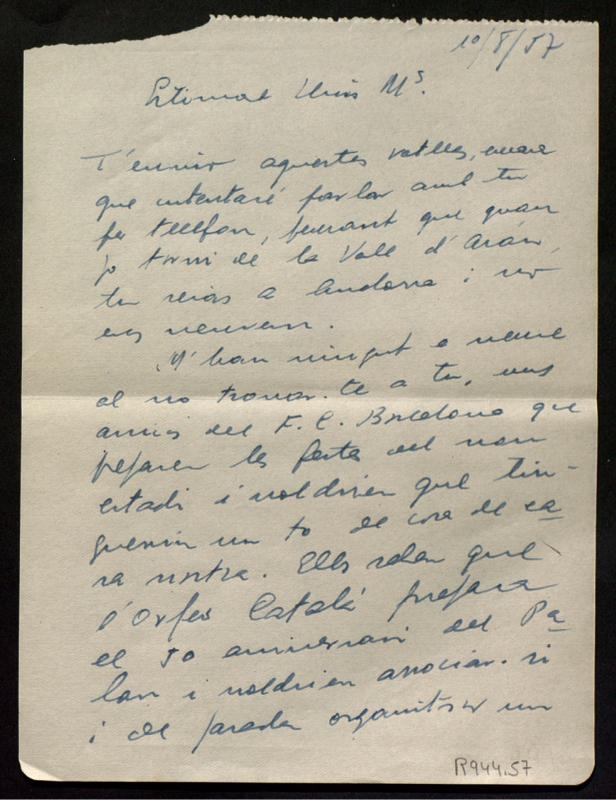 10/8/57
Estimat Lluis Mª.
T'envio aquestes ratlles, encara
que intentaré parlar amb tu
per telefon, pensant que quan
jo torni de la Vall d'Arán,
tu seràs a Andorra i no
ens veurem.
M'han vingut a veure
al no trovar-te a tu, uns
amics del F. C. Barcelona que
preparen les festes del nou
estadi i voldrien que tin-
guessin un to de cosa de ca-
sa nostra. Ells saben que
l'Orfeo Català prepara
el 50 aniversari del Pa-
lau i voldrien associar-s'hi
i de parada organitzar un
R944.57